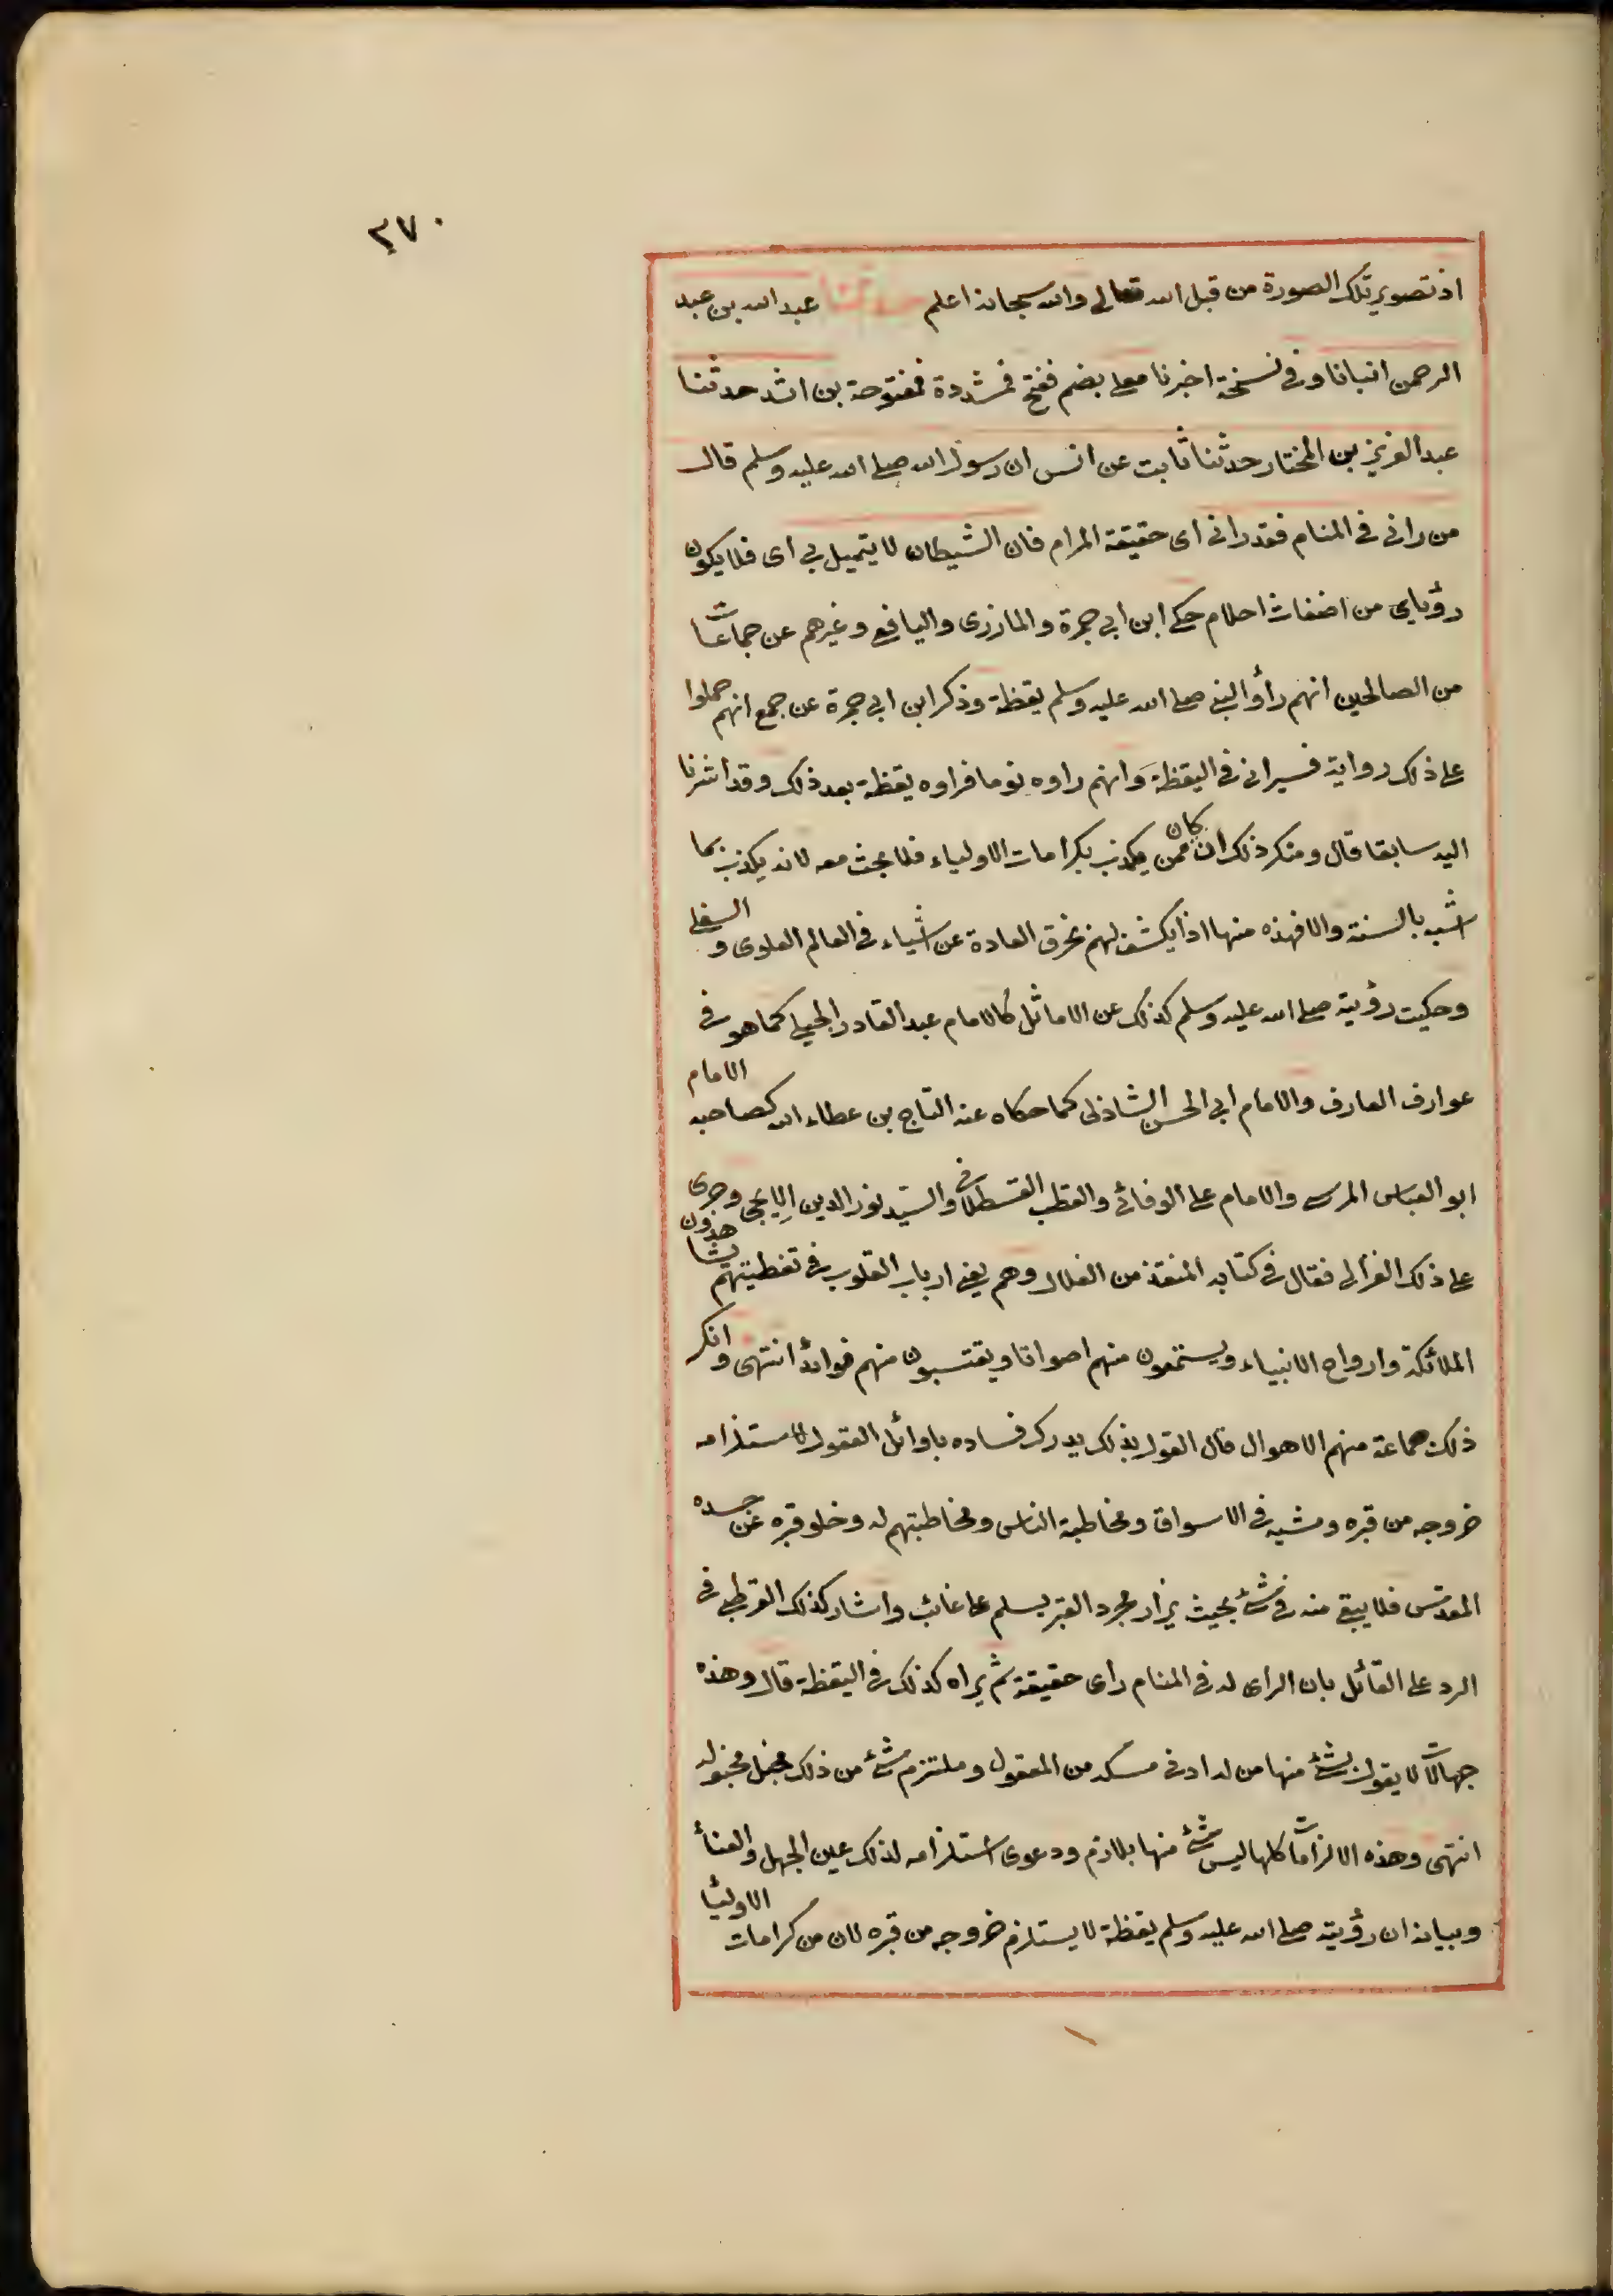 ٢٧٠
اذ تصوير تلك الصورة من قبل الله تعالى والله سبحانه اعلم حدثنا عبد الله بن عبد
الرحمن انبانا وفى نسخة اخبرنا معلى بضم ففتح فمشددة مفتوحة بن اشد حدثنا
عبد العزيز بن المختار حدثنا ثابت عن انس ان رسول الله صلى الله عليه وسلم قال
من رانى فى المنام فقد رانى اى حقيقة المرام فان الشيطان لا يتميل بي اى فلا يكون
رؤياى من اضغاث احلام حكى ابن ابي جمرة والمازرى واليافعى وغيرهم عن جماعات
من الصالحين انهم رأوا النبى صلى الله عليه وسلم يقظة وذكر ابن ابي جمرة عن جمع انهم حملوا
على ذلك رواية فسيرانى فى اليقظة وانهم راوه نوما فراوه يقظة بعد ذلك وقد اشرنا
اليه سابقا قال ومنكر ذلك ان كان ممن يكذب بكرامات الاولياء فلا بحث معه لانه يكذب بما
اشبه بالسنة والا فهذه منها اذ ايكشف لهم بخرق العادة عن اشياء فى العالم العلوى والسفلى
وحكيت رؤيته صلى الله عليه وسلم كذلك عن الاماثل كالامام عبد القادر الجيلى كما هو فى
عوارف العارف والامام ابى الحسن الشاذلى كما حكاه عنه التاج بن عطاء الله كصاحبه الامام
ابو العباس المرسى والامام على الوفائى والقطب القسطلانى والسيد نور الدين الايجى وجرى
على ذلك الغزالى فقال فى كتابه المنقذ من الضلال وهم يعنى ارباب القلوب فى تغظيتهم يشاهدون
الملائكة وارواح الانبياء ويستمعون منهم اصواتا ويقتبسون منهم فوائد انتهى وانكر
ذلك جماعة منهم الاهوال قال القول بذلك يدرك فساده باوائل العقول لاستلزامه
خروجه من قبره ومشيه فى الاسواق ومخاطبة الناس ومخاطبتهم له وخلو قبره عن جسده
المقدس فلا يبقى منه فى شئ بحيث يزار مجرد القبر يسلم على غائب واشار كذلك القرطبى فى
الرد على القائل بان الراى له فى المنام راى حقيقة ثم يراه كذلك فى اليقظة قال وهذه
جهالات لا يقول بشئ منها من له ادنى مسكه من المعقول وملتزم شئ من ذلك مخبل مخبول
انتهى وهذه الالزامات كلها ليس شئ منها بلازم ودعوى استلزامه لذلك عين الجهل والعناد
وبيانه ان رؤيته صلى الله عليه وسلم يقظة لا يستلزم خروجه من قبره لان من كرامات الاوليا